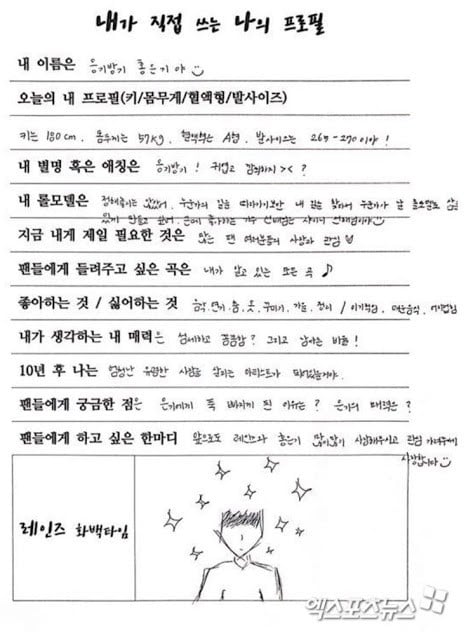 내가 직접 쓰는 나의 프로필
내 이름은 응기방기 홍은기야
오늘의 내 프로필(키/몸무게/혈액형/발사이즈)
키는 180cm, 몸무게는 57kg, 혈액형은 A형, 발사이즈는 265-270이야!
내 별명 혹은 애칭은 응기방기! 귀엽고 깜찍하지><?
내 롤모델은 정해놓지는 않았어. 누군가의 길을 따라가기보단 내 길을 찾아서 누군가가 날 롤모델로
있게 만들고 싶어. 선배님은 샤이니 선배님이야
지금 내게 제일 필요한 것은 많은 팬 여러분들의 사랑과 관심
팬들에게 들려주고 싶은 곡은 내가 알고 있는 모든 곡 ♪
좋아하는 것 / 싫어하는 것 음악, 연기, 춤, 옷, 꾸미기, 가을, / 이기적임, 매운음식,
내가 생각하는 내 매력은 섬세하고 꼼꼼함? 그리고 넘치는 바튼!
10년 후 나는 엄청난 유명한 사람을 아티스트가 되어있을거야.
팬들에게 궁금한 점은 은기에게 푹 빠지게 된 이유는? 은기의 매력은?
팬들에게 하고 싶은 한마디 앞으로도 레인즈와 홍은기 많이많이 사랑해주시고 관심 가져주세요
사랑합니다
레인즈 화백타임
엑스포츠뉴스